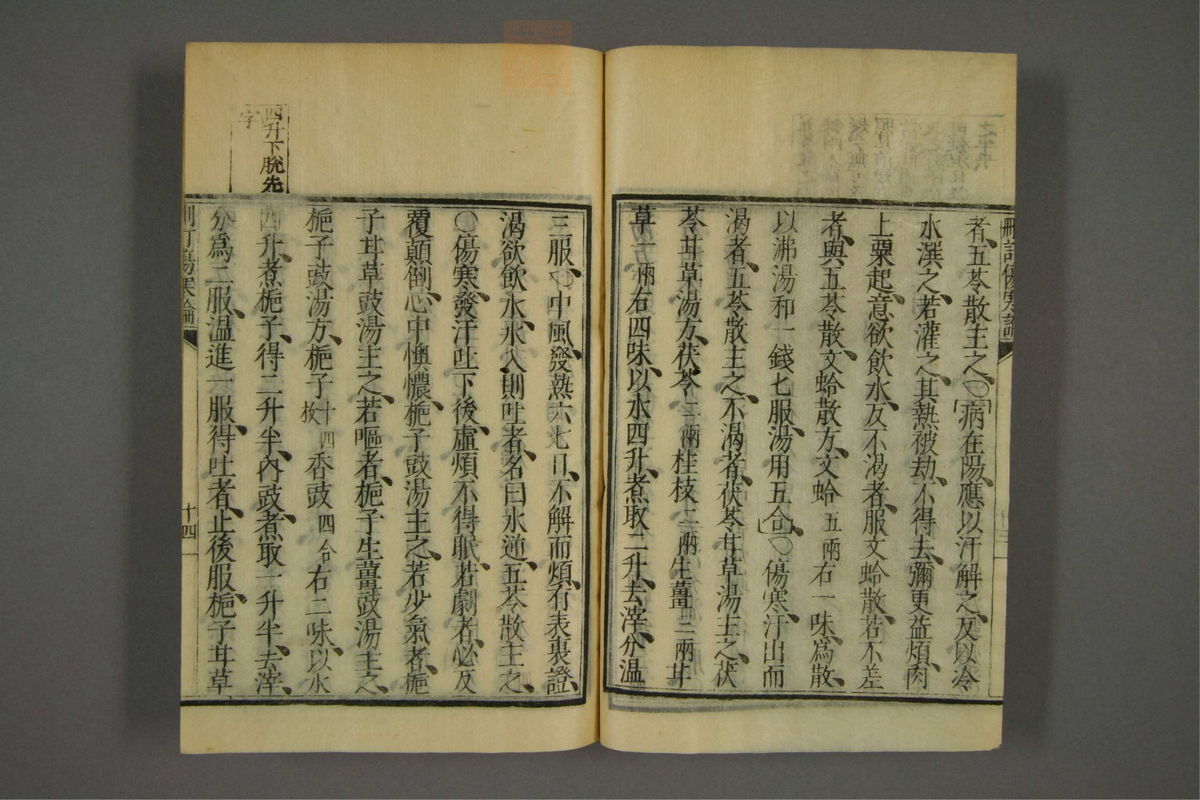 者、五苓散主之、○病在陽、應以汗解之、反以冷
水潠之、若灌之、其熱被劫、不得去、彌更益煩、肉
上粟起、意欲飲水、反不渴者、服文蛤散、若不差
者、與五苓散、文蛤散方、文蛤五兩右一味爲散、
以沸湯和一錢匕服、湯用五合、○傷寒、汗出而
渴者、五苓散主之、不渴者、茯苓甘草湯主之、茯
苓甘草湯方、茯苓二兩桂枝二兩生薑三兩甘
草一兩右四味、以水四升、煮取二升、去滓、分温
三服、○中風、發熱六七日、不解而煩、有表裏證、
渴欲飲水、水入則吐者、名曰水逆、五苓散主之、
○傷寒、發汗吐下後、虛煩不得眠、若劇者、必反
覆顛倒、心中懊憹、梔子豉湯主之、若少氣者、梔
子甘草豉湯主之、若嘔者、梔子生薑豉湯主之、
梔子豉湯方、梔子十四枚香豉四合右二味、以水
四升、煮梔子、得二升半、內豉、煮取一升半、去滓、
分爲二服、温進一服、得吐者、止後服、梔子甘草
四升下脫先
字
刪訂傷寒論
十四